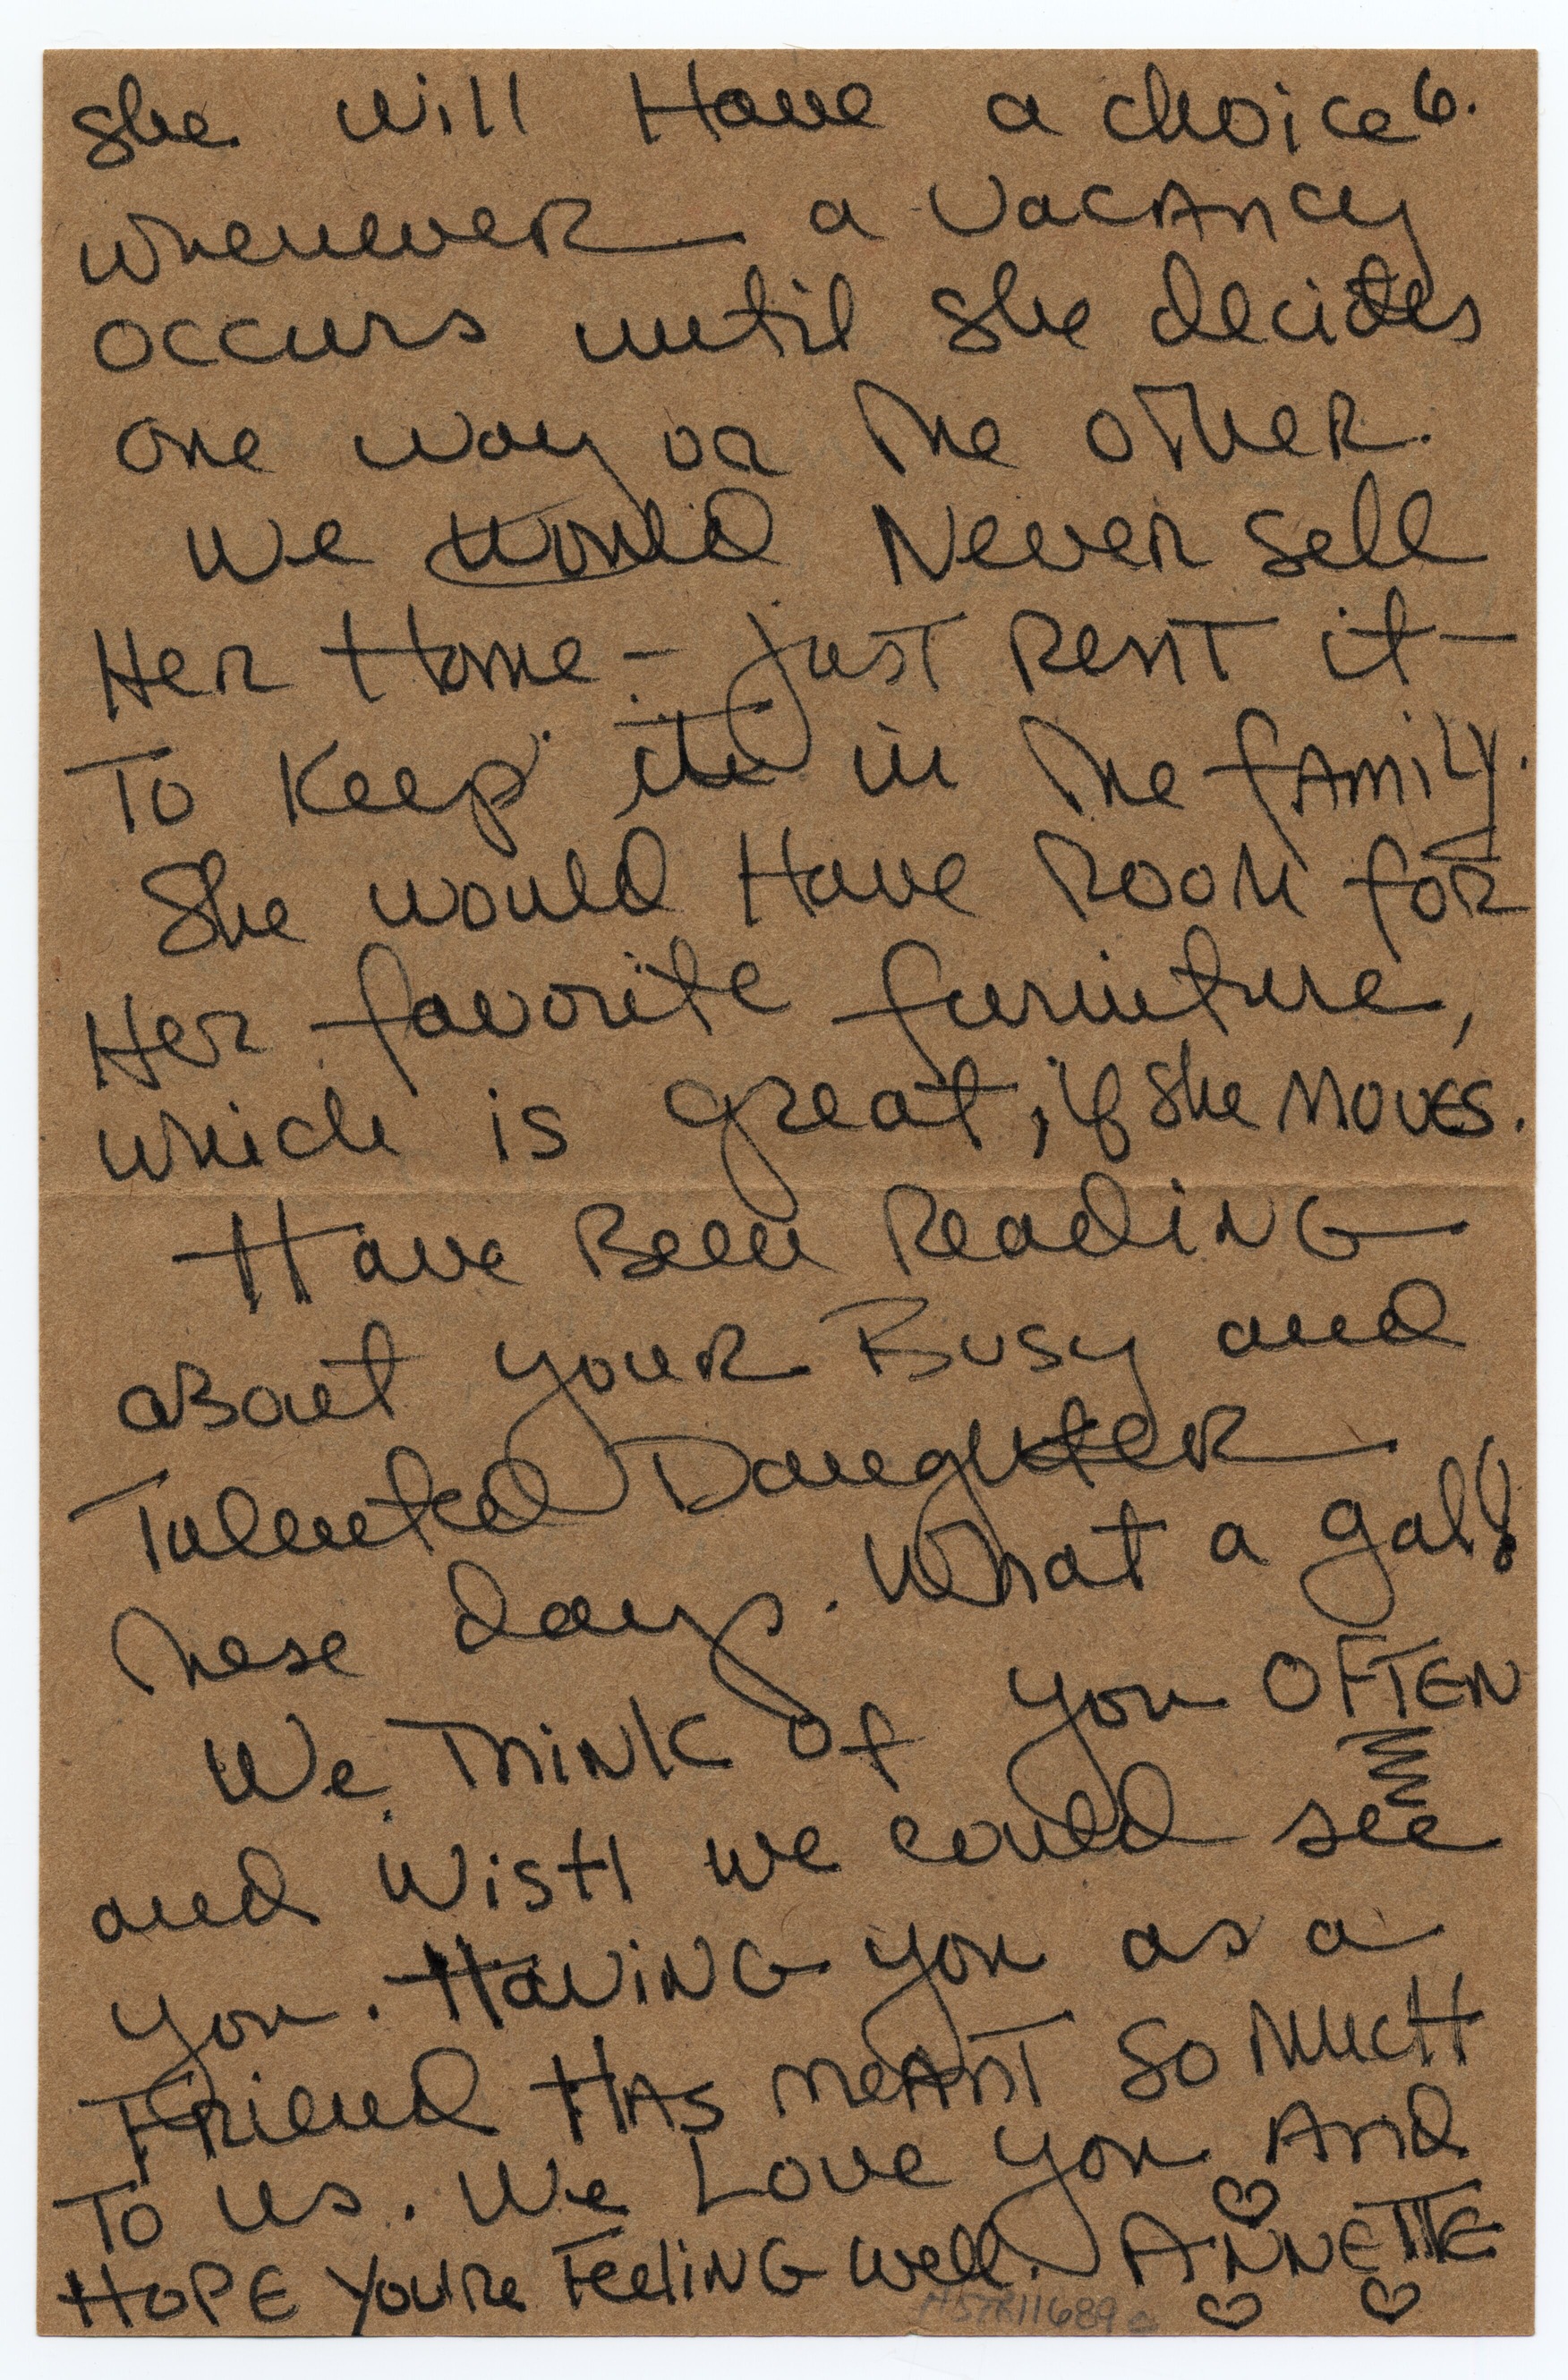 she will Have a choice 6.
whenever a vacancy
occurs until she decides
one way or the other.
We would Never sell
Her Home - just Rent it -
To Keep it in the family.
She would Have Room for
Her favorite furniture,
which is great, if she moves.
Have Been Reading
about your Busy and
Talented Daughter
these days. What a gal!
We Think of you OFTEN
and Wish we could see
you. Having you as a
Friend Has meant so much
To us. We Love you And
Hope You're Feeling well. ANNETTE